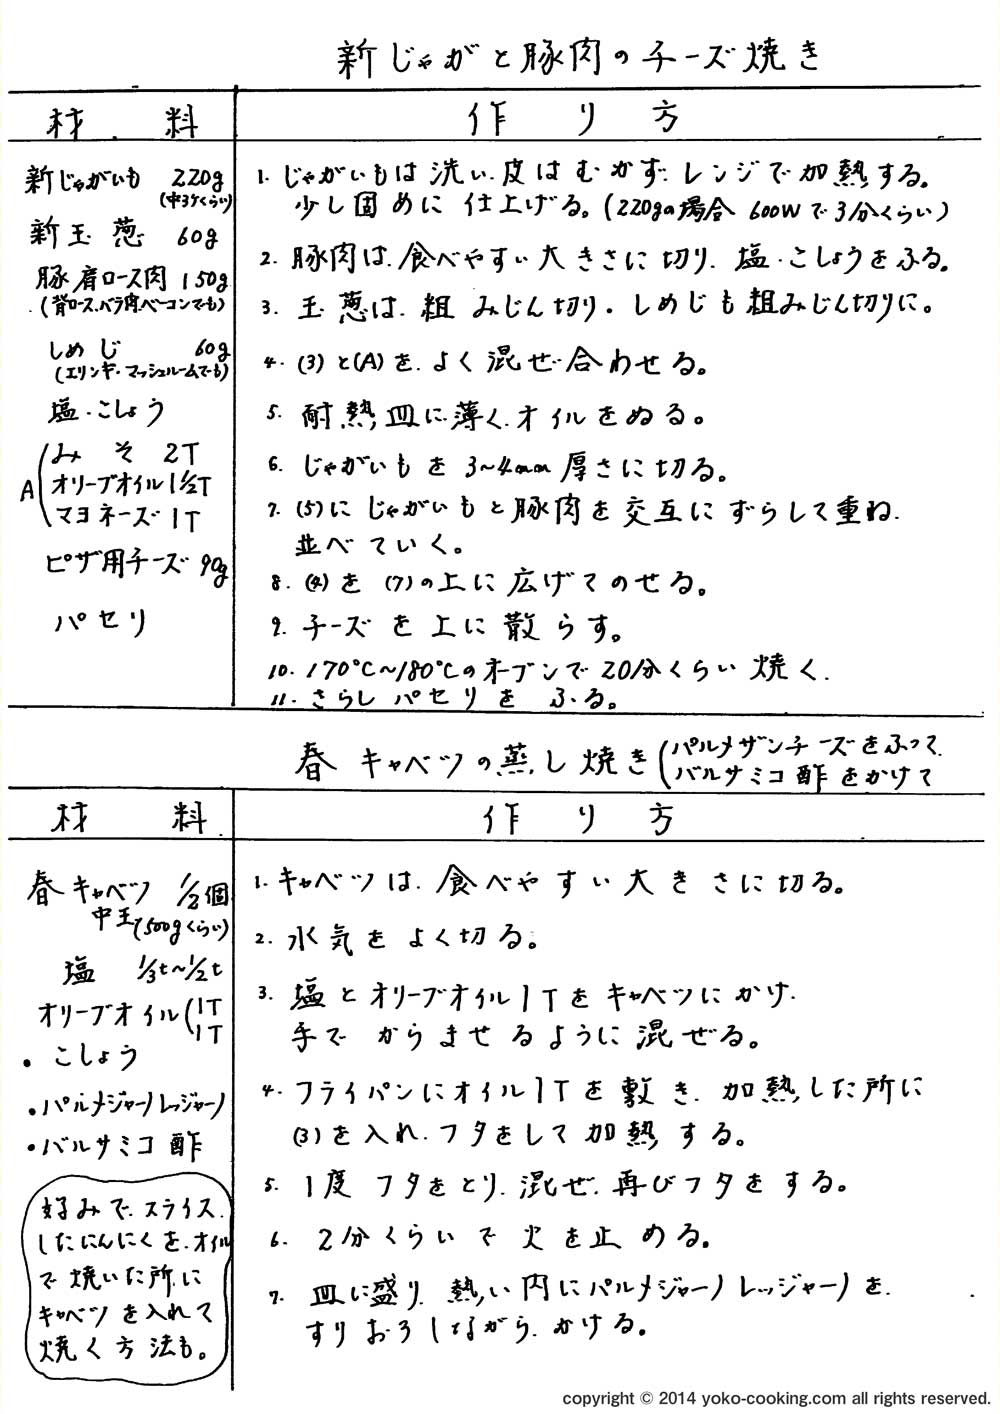 新じゃがと豚肉のチーズ焼き
材 料
作 り 方
新じゃがいも 220g
(中3ケくらい)
新玉葱 60g
豚肩ロース肉 150g
(背ロース、バラ肉、ベーコンでも)
しめじ 60g
(エリンギ・マッシュルームでも)
塩・こしょう
A
みそ 2T
オリーブオイル 1½T
マヨネーズ 1T
ピザ用チーズ 90g
パセリ
1. じゃがいもは洗い、皮はむかず、レンジで加熱する。
少し固めに仕上げる。(220gの場合 600Wで3分くらい)
2. 豚肉は、食べやすい大きさに切り、塩・こしょうをふる。
3. 玉葱は、粗みじん切り。しめじも粗みじん切りに。
4. (3)と(A)を、よく混ぜ合わせる。
5. 耐熱皿に薄く、オイルをぬる。
6. じゃがいもを3~4mm厚さに切る。
7. (5)にじゃがいもと豚肉を交互にずらして重ね、
並べていく。
8. (4)を(7)の上に広げてのせる。
9. チーズを上に散らす。
10. 170℃~180℃のオーブンで20分くらい焼く。
11. さらしパセリをふる。
春キャベツの蒸し焼き(パルメザンチーズをふって、
バルサミコ酢をかけて
材 料
作 り 方
春キャベツ ½個
中玉(500gくらい)
塩 ⅓t~½t
オリーブオイル(1T
1T
・こしょう
・パルメジャーノレッジャーノ
・バルサミコ酢
好みで、スライス
したにんにくを、オイル
で焼いた所に
キャベツを入れて
焼く方法も。
1. キャベツは、食べやすい大きさに切る。
2. 水気をよく切る。
3. 塩とオリーブオイル1Tをキャベツにかけ、
手でからませるように混ぜる。
4. フライパンにオイル1Tを敷き、加熱した所に
(3)を入れ、フタをして加熱する。
5. 1度フタをとり、混ぜ、再びフタをする。
6. 2分くらいで火を止める。
7. 皿に盛り、熱い内にパルメジャーノレッジャーノを、
すりおろしながら、かける。
copyright © 2014 yoko-cooking.com all rights reserved.